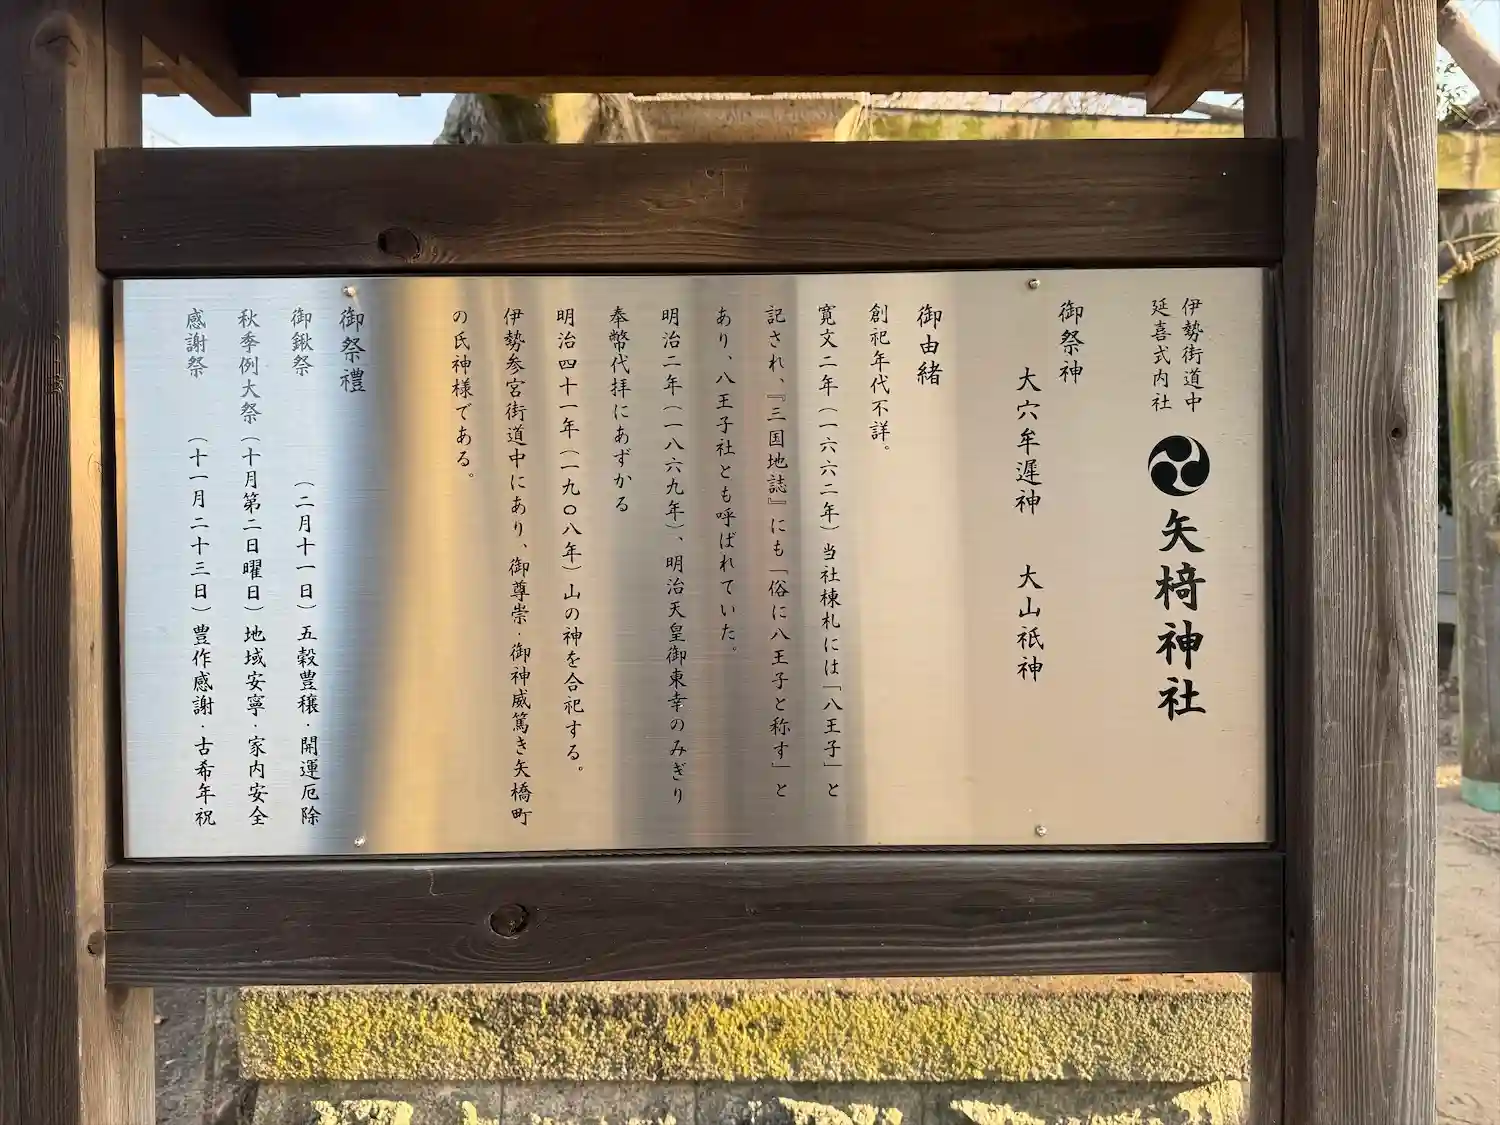 伊勢街道中
延喜式内社
矢椅神社
御祭神
大穴牟遅神　大山祇神
御由緒
創祀年代不詳。
寛文二年（一六六二年）当社棟札には「八王子」と
記され、『三国地誌』にも「俗に八王子と称す」と
あり、八王子社とも呼ばれていた。
明治二年（一八六九年）、明治天皇御東幸のみぎり
奉幣代拝にあずかる
明治四十一年（一九〇八年）山の神を合祀する。
伊勢参宮街道中にあり、御尊崇・御神威篤き矢橋町
の氏神様である。
御祭禮
御鍬祭　（二月十一日）五穀豊穣・開運厄除
秋季例大祭（十月第二日曜日）地域安寧・家内安全
感謝祭　（十一月二十三日）豊作感謝・古希年祝